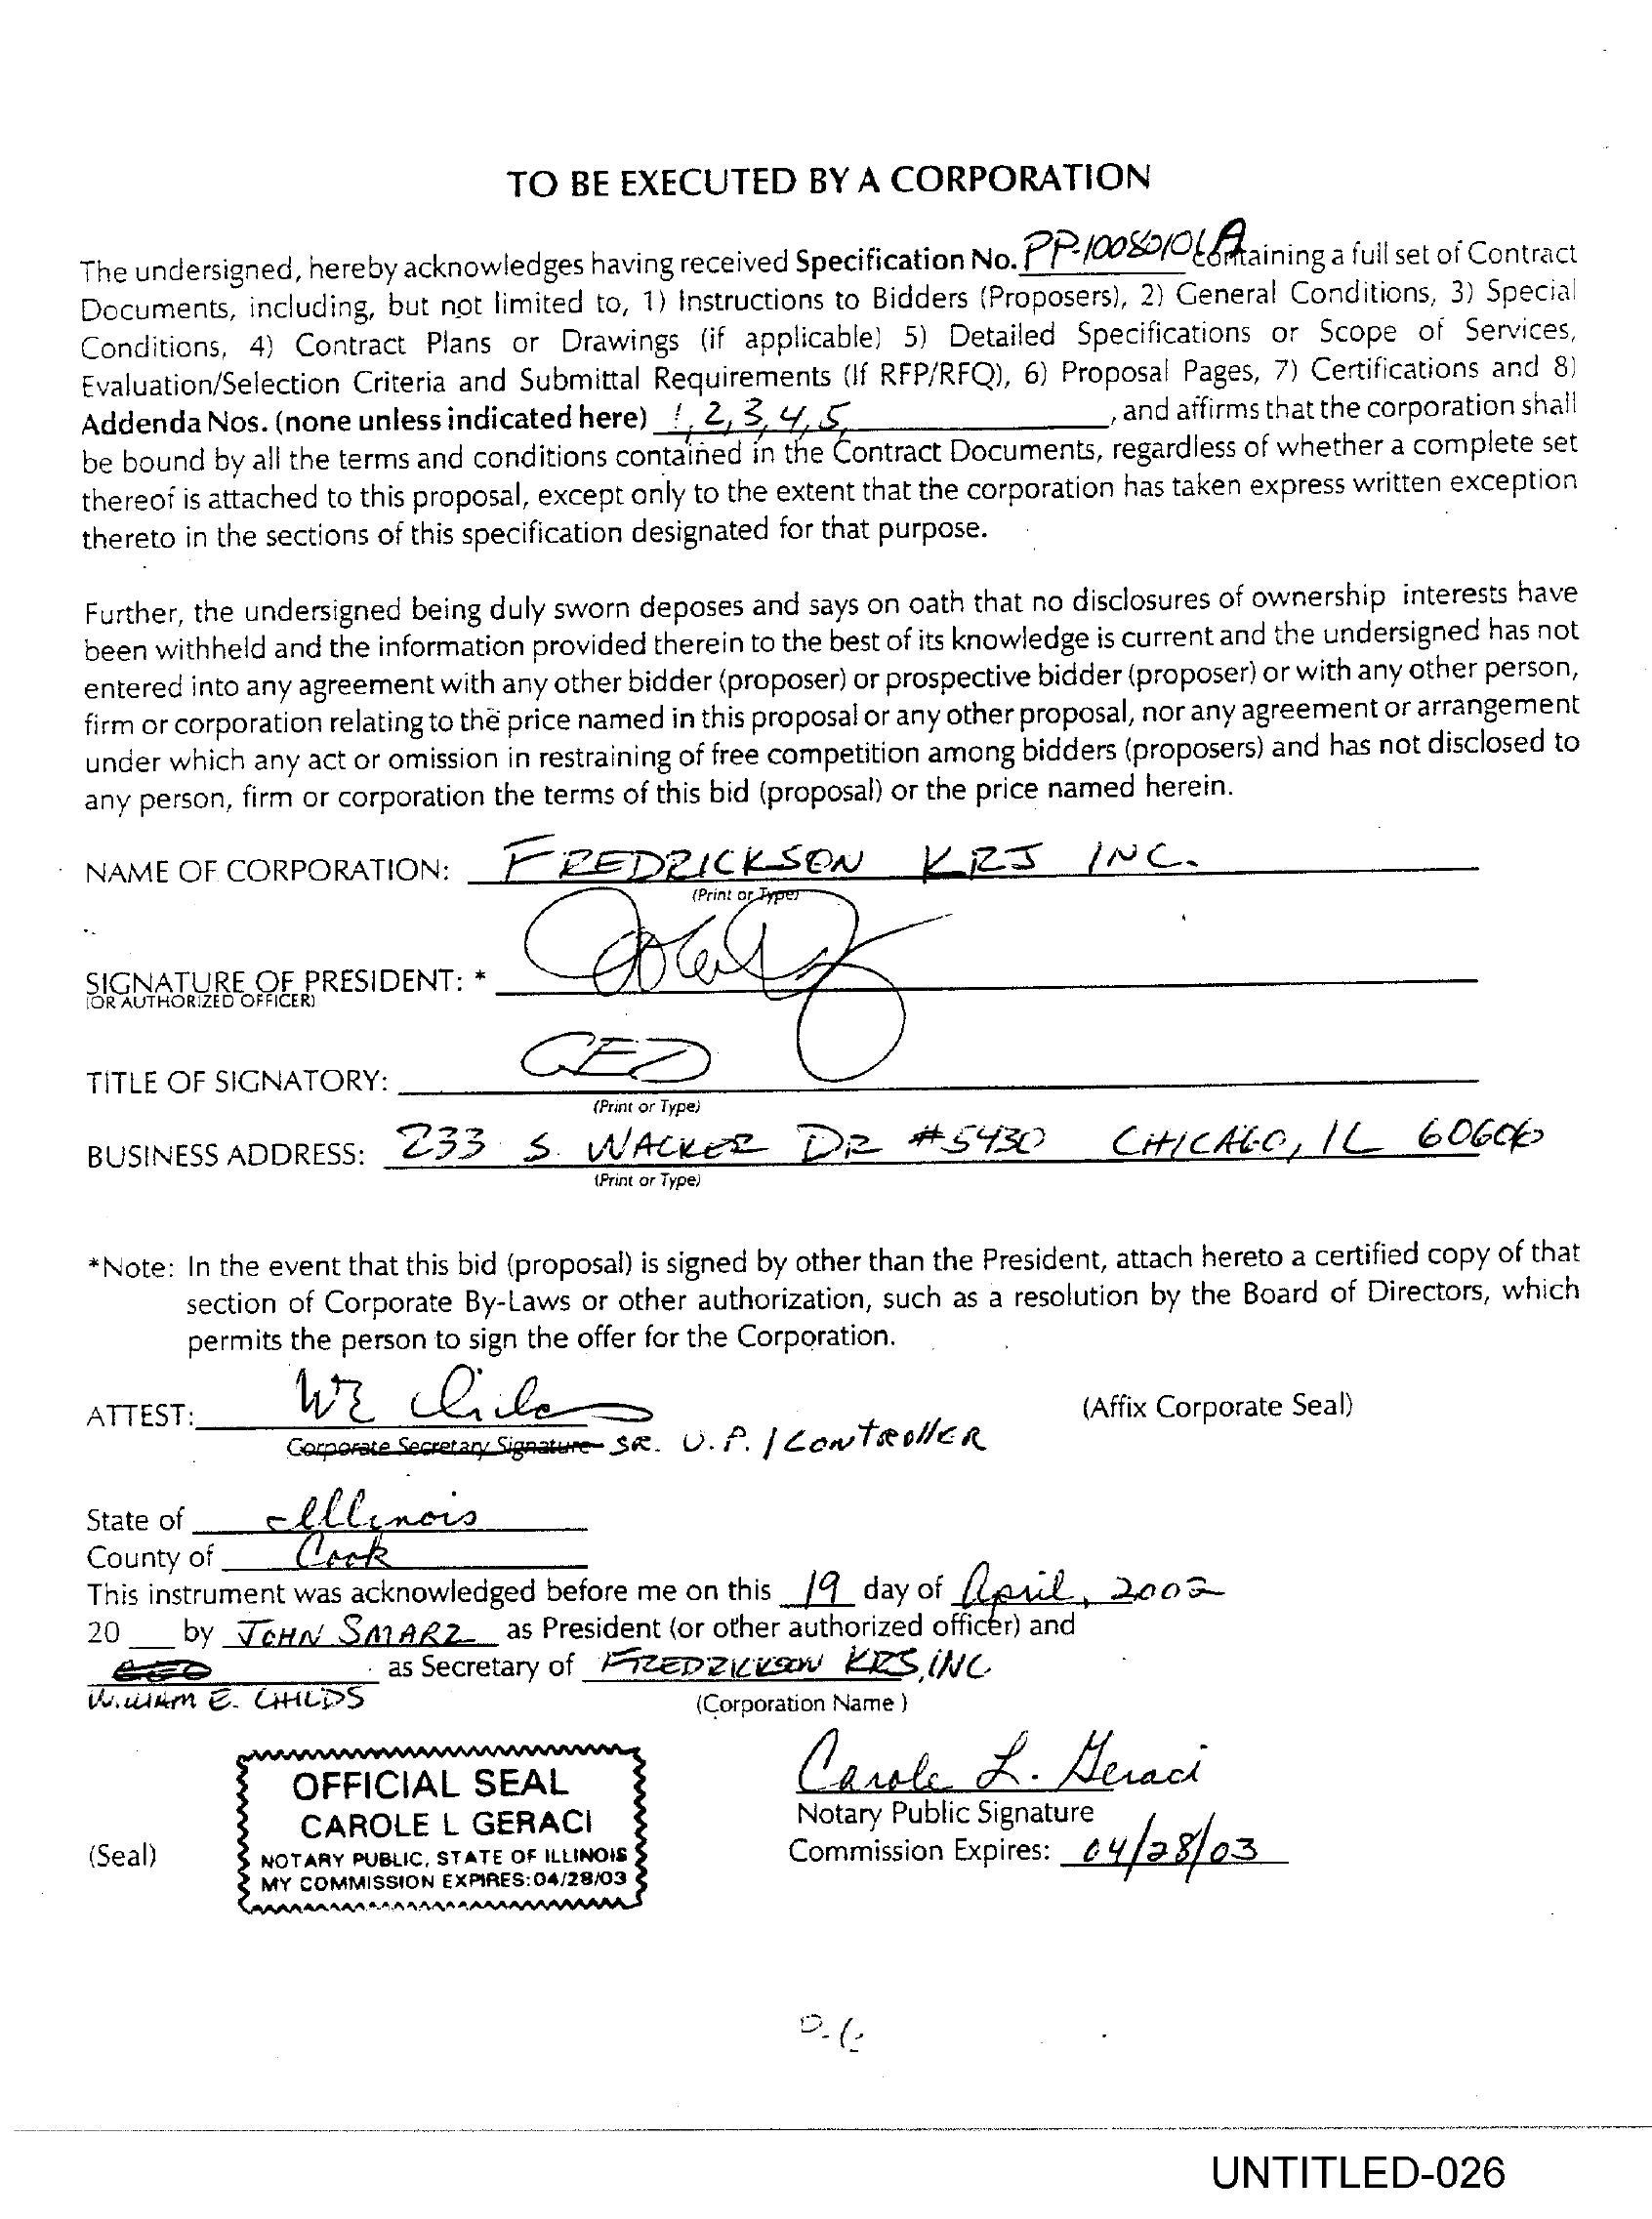 TO BE EXECUTED BY A CORPORATION
The undersigned, hereby acknowledges having received Specification No. PP-10080106A containing a full set of Contract
Documents, including, but not limited to, 1) Instructions to Bidders (Proposers), 2) General Conditions, 3) Special
Conditions, 4) Contract Plans or Drawings (if applicable) 5) Detailed Specifications or Scope of Services,
Evaluation/Selection Criteria and Submittal Requirements (If RFP/RFQ), 6) Proposal Pages, 7) Certifications and 8)
Addenda Nos. (none unless indicated here) 1, 2, 3, 4, 5, , and affirms that the corporation shall
be bound by all the terms and conditions contained in the Contract Documents, regardless of whether a complete set
thereof is attached to this proposal, except only to the extent that the corporation has taken express written exception
thereto in the sections of this specification designated for that purpose.
Further, the undersigned being duly sworn deposes and says on oath that no disclosures of ownership interests have
been withheld and the information provided therein to the best of its knowledge is current and the undersigned has not
entered into any agreement with any other bidder (proposer) or prospective bidder (proposer) or with any other person,
firm or corporation relating to the price named in this proposal or any other proposal, nor any agreement or arrangement
under which any act or omission in restraining of free competition among bidders (proposers) and has not disclosed to
any person, firm or corporation the terms of this bid (proposal) or the price named herein.
NAME OF CORPORATION: FREDRICKSON KRS INC.
(Print or Type)
SIGNATURE OF PRESIDENT: *
(OR AUTHORIZED OFFICER)
TITLE OF SIGNATORY: CEO
(Print or Type)
BUSINESS ADDRESS: 233 S. WACKER DR #5430 CHICAGO, IL 60606
(Print or Type)
*Note: In the event that this bid (proposal) is signed by other than the President, attach hereto a certified copy of that
section of Corporate By-Laws or other authorization, such as a resolution by the Board of Directors, which
permits the person to sign the offer for the Corporation.
ATTEST: WE Childs (Affix Corporate Seal)
Corporate Secretary Signature SR. V.P. / CONTROllER
State of Illinois
County of Cook
This instrument was acknowledged before me on this 19 day of April, 2002
20 __ by JOHN SMARZ as President (or other authorized officer) and
CEO as Secretary of FREDRICKSON KRS, INC
WILLIAM E. CHILDS (Corporation Name )
OFFICIAL SEAL
CAROLE L GERACI
NOTARY PUBLIC, STATE OF ILLINOIS
MY COMMISSION EXPIRES:04/28/03
(Seal)
Carole L. Geraci
Notary Public Signature
Commission Expires: 04/28/03
UNTITLED-026